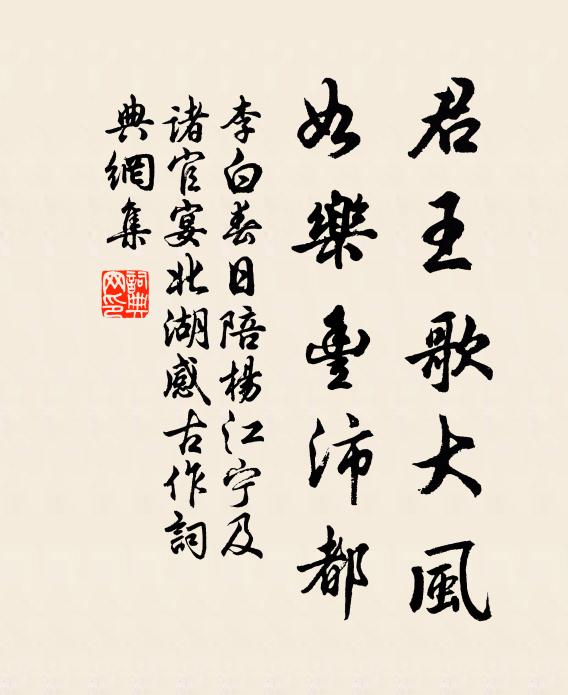 君王歌大風
如樂豐沛都
李白春日陪楊江宁及
諸官宴北湖感古作詞
典網集
詞典
网印